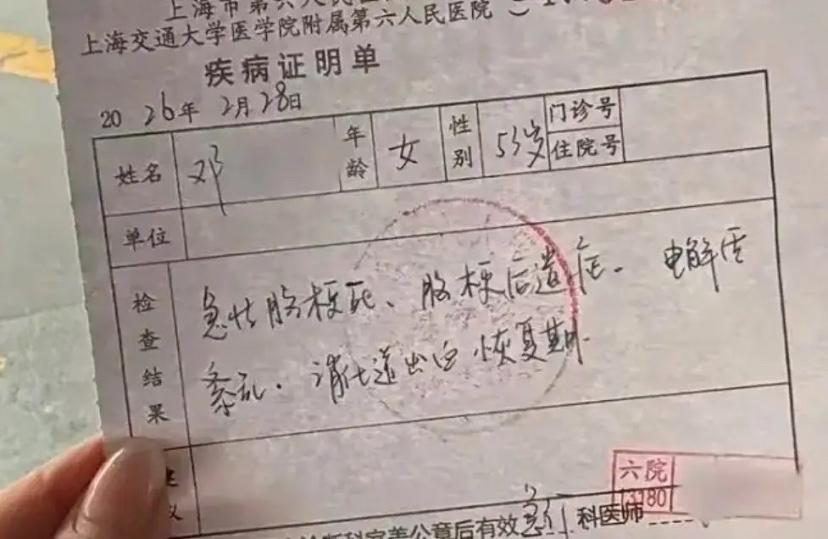 上海市第六人民医
上海交通大学医学院附属第六人民医院
疾病证明单
2026年2月28日
姓名 邓 年龄 女 性别 53岁 门诊号
住院号
单位
检查结果 急性脑梗死、脑梗后遗症、电解质
紊乱、消化道出血恢复期.
六院
13180
诊断科室盖公章后有效 急诊 科医师